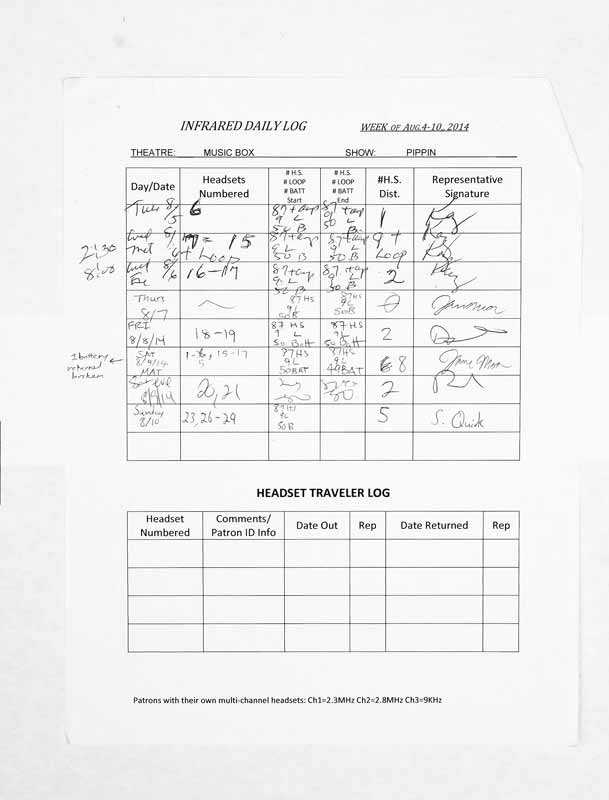 INFRARED DAILY LOG WEEK OF AUG.4-10, 2014
THEATRE: MUSIC BOX SHOW: PIPPIN
Day/Date
Headsets
Numbered
# H.S.
# LOOP
# BATT
Start
# H.S.
# LOOP
# BATT
End
#H.S.
Dist.
Representative
Signature
Tues 8/5
6
87
9 L
50 B
87
50 B
1
2:30
Wed
Mat
7 = 15
+ Loop
87
9 L
50 B
87
9 L
50 B
9 +
Loop
8:00
Wed 8/6
Eve
16-17
87
9 L
50 B
87
9 L
50 B
2
Thurs
8/7
87 HS
9L
50B
87 HS
9L
50B
FRI
8/8/14
18-19
87 HS
9 L
50 Batt
87 HS
9 L
50 Batt
2
1 battery
returned
broken
SAT
8/9/14
MAT
15-17
87HS
9L
50BAT
87HS
9L
49BAT
8
8/9/14
20, 21
2
Sunday
8/10
23, 26-29
87 HS
9L
50B
5
S. Quirk
HEADSET TRAVELER LOG
Headset
Numbered
Comments/
Patron ID Info
Date Out
Rep
Date Returned
Rep
Patrons with their own multi-channel headsets: Ch1=2.3MHz Ch2=2.8MHz Ch3=9KHz